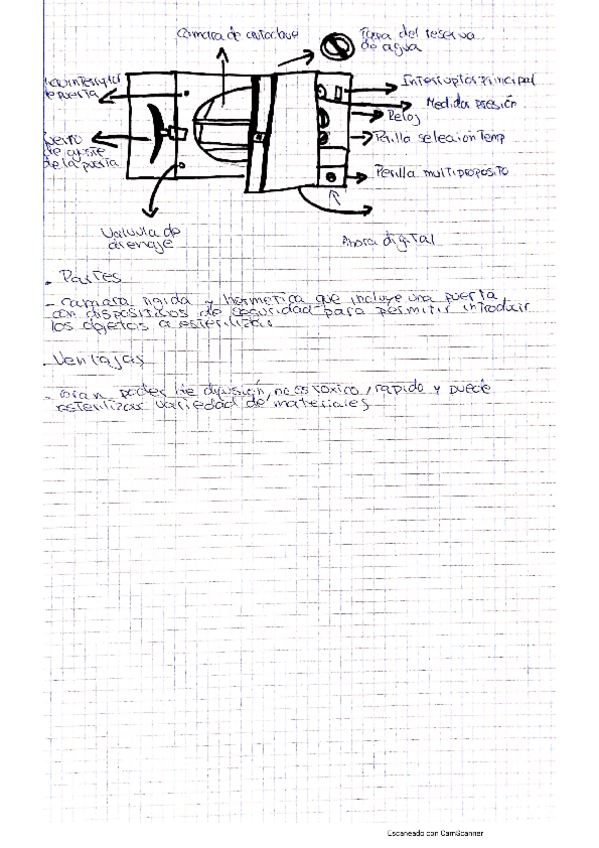 Cámara de autoclave
Tapa del reserva
de agua
Interruptor principal
Medida presión
Reloj
Perilla selecion Temp
Perilla multiproposito
de ajuste
de la puerta
Valvula de
drenaje
Ahora digital
- Partes
- camara rigida y hermetica que incluye una puerta
con dispositivos de seguridad para permitir introducir
los objetos a esterilizar
- Ventajas
- Gran poder de difusión, no es toxico, rapido y puede
esterilizar variedad de materiales
Escaneado con CamScanner